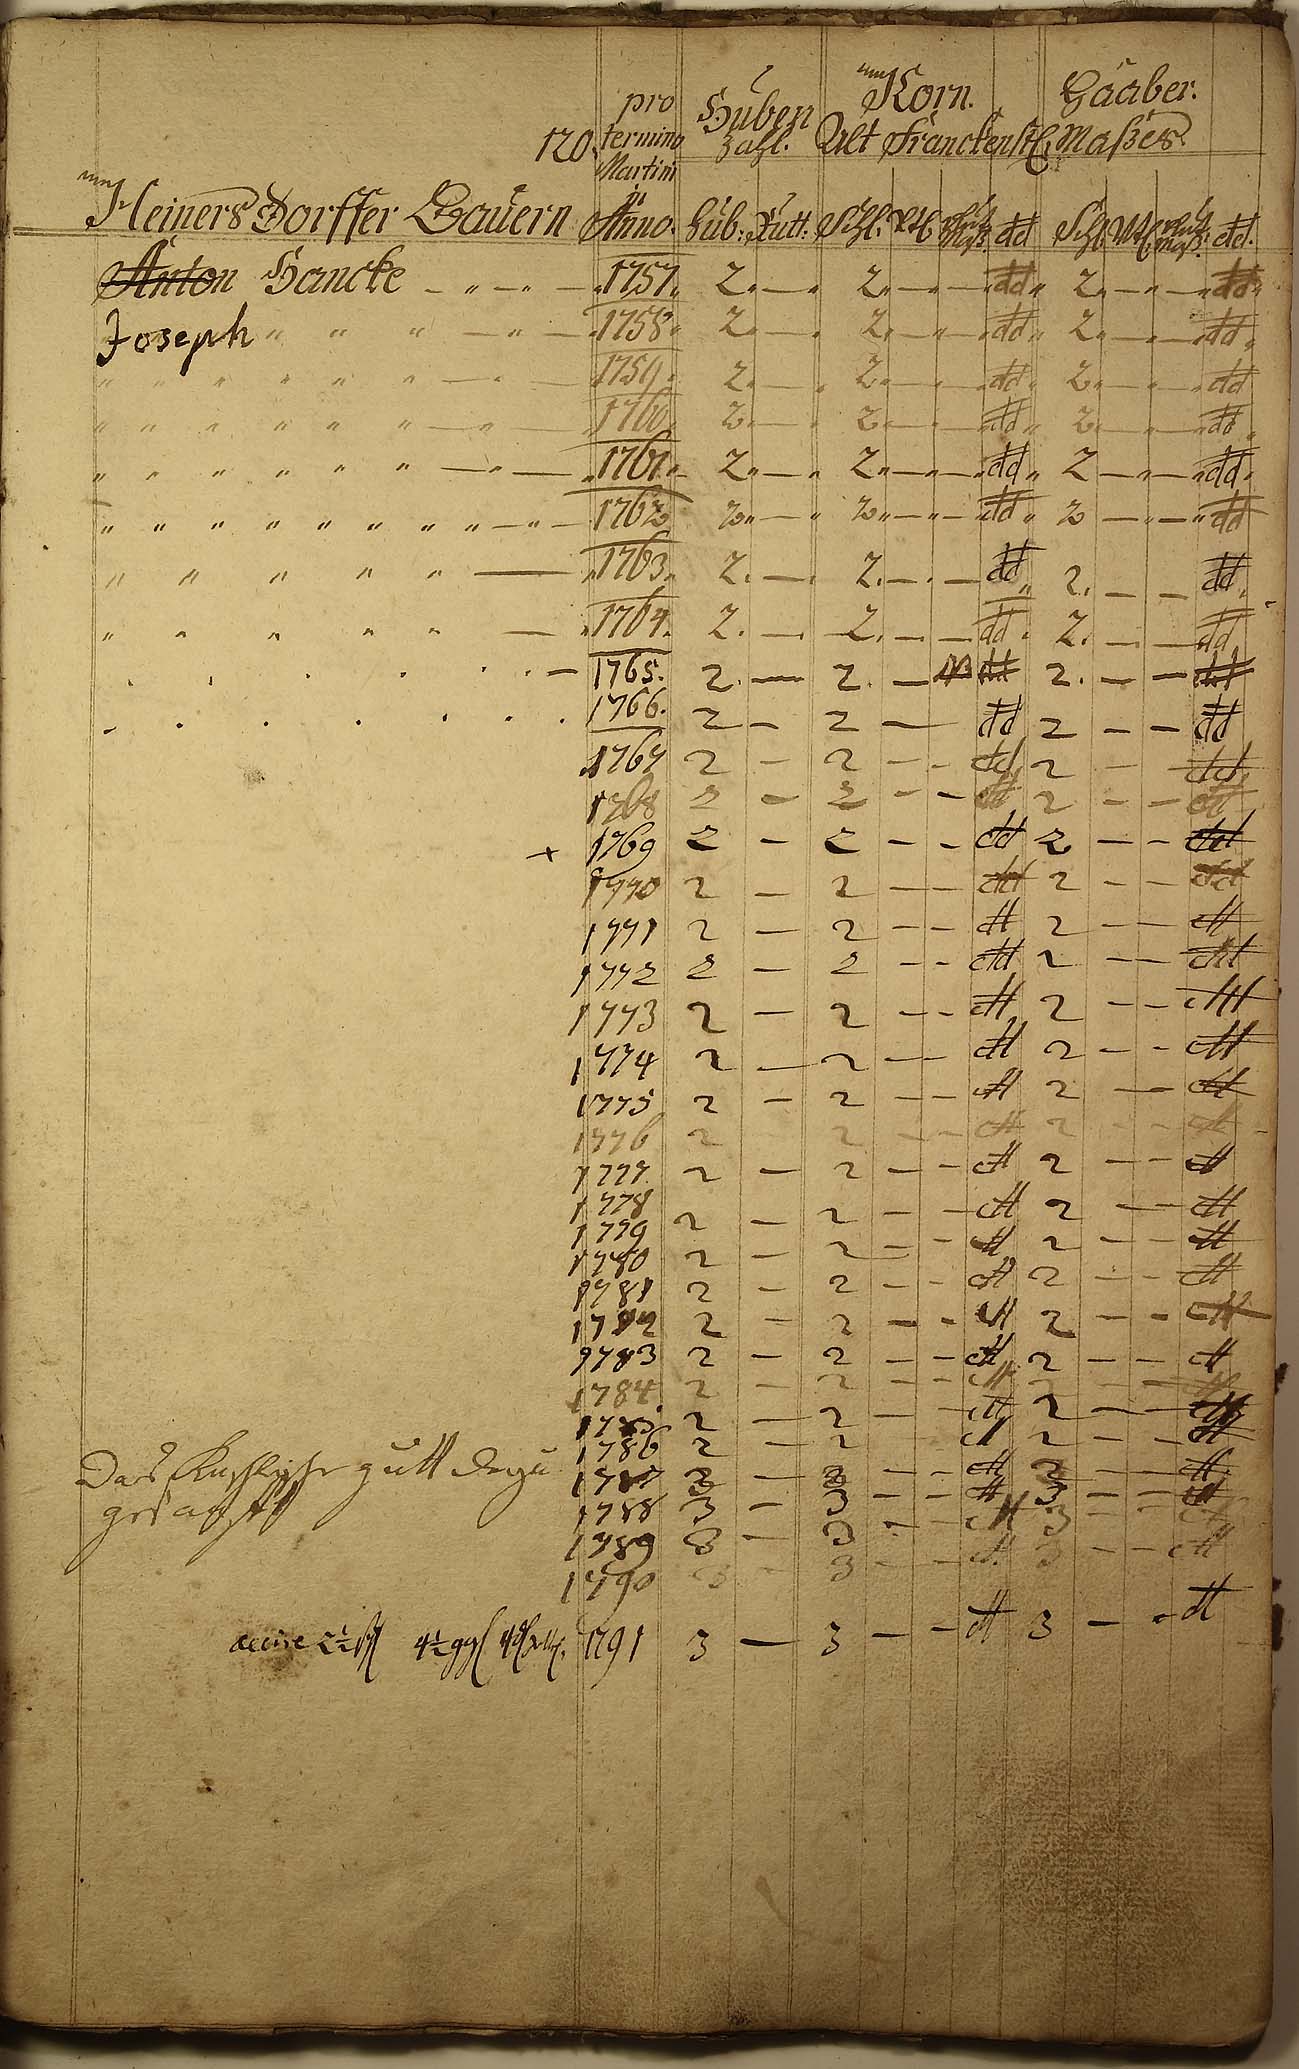 pro Huben Korn. Haaber.
120. termino Zahl. Alt Franckenst: Maßes.
Martini
in
Heinersdorffer Bauern Anno. Hub: Rutt: Schl. Vtl. Maß. dd Schl. Vtl. Maß. dd.
Anton Hancke 1757. 2. — 2. — — dd 2. — — dd
Joseph " " " 1758. 2. — 2. — — dd 2. — — dd
" " " " " " 1759. 2. — 2. — — dd 2. — — dd
" " " " " " 1760. 2. — 2. — — dd 2. — — dd
" " " " " " 1761. 2. — 2. — — dd 2 — — dd
" " " " " " " " " 1762 2. — 2. — — dd 2 — — dd
" " " " " 1763. 2. — 2. — — dd 2. — — dd
" " " " " 1764. 2. — 2. — — dd 2. — — dd
1765. 2. — 2. — dd 2. — — dd
1766. 2 — 2 — dd 2 — — dd
1767 2 — 2 — — dd 2 — dd
1768 2 — 2 — — dd 2 — — dd
+ 1769 2 — 2 — — dd 2 — — dd
1770 2 — 2 — — dd 2 — — dd
1771 2 — 2 — — dd 2 — — dd
1772 2 — 2 — — dd 2 — — dd
1773 2 — 2 — — dd 2 — — dd
1774 2 — 2 — — dd 2 — — dd
1775 2 — 2 — — dd 2 — — dd
1776 2 — 2 — — dd 2 — — dd
1777. 2 — 2 — — dd 2 — — dd
1778 2 — 2 — — dd 2 — — dd
1779 2 — 2 — — dd 2 — — dd
1780 2 — 2 — — dd 2 — — dd
1781 2 — 2 — — dd 2 — — dd
1782 2 — 2 — — dd 2 — — dd
1783 2 — 2 — — dd 2 — — dd
1784 2 — 2 — — dd 2 — — dd
1785 2 — 2 — — dd 2 — — dd
1786 2 — 2 — — dd 2 — — dd
Das gutt dazu 1787 3 — 3 — — dd 3 — — dd
1788 3 — 3 — — dd 3 — — dd
1789 3 — 3 — — dd 3 — — dd
1790 3 — 3 — — dd 3 — — dd
accise 2½ 4½ 1791 3 — 3 — — dd 3 — — dd